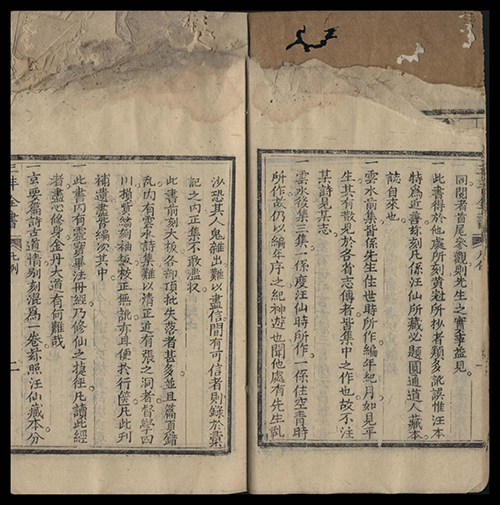 同閱者首尾參觀則先生之實事益見
一此書得於他處所刻黃冠所抄者類多訛誤惟汪本
特爲近善茲刻凡係汪仙所藏必題圓通道人藏本
誌自來也
一雲水前集皆係先生住世時所作編年紀月如見平
生其有散見於各省志傳者皆集中之作也故不注
某詩見某志
一雲水後集三集一係度汪仙時所作一係住空青時
所作茲仍以編年序之紀神遊也聞他處有先生乩
沙恐其人鬼雜出難以盡信間有可信者則錄於彙
記之内正集不敢濫收
一此書前刻大板各部頂批失落者甚多並且篇頁錯
亂内有雲水詩集難以清正道有張之洞者督學四
川捐貲鐫刻袖板校正無訛亦且便於行篋凡此刊
補遺盡皆編次其中
一此書内有靈寶畢註冊經乃修仙之捷徑凡讀此經
者盡心修身金丹大道有何難哉
一玄要篇詩古道情别刻混爲一卷茲照汪仙藏本分
三丰全書 凡例